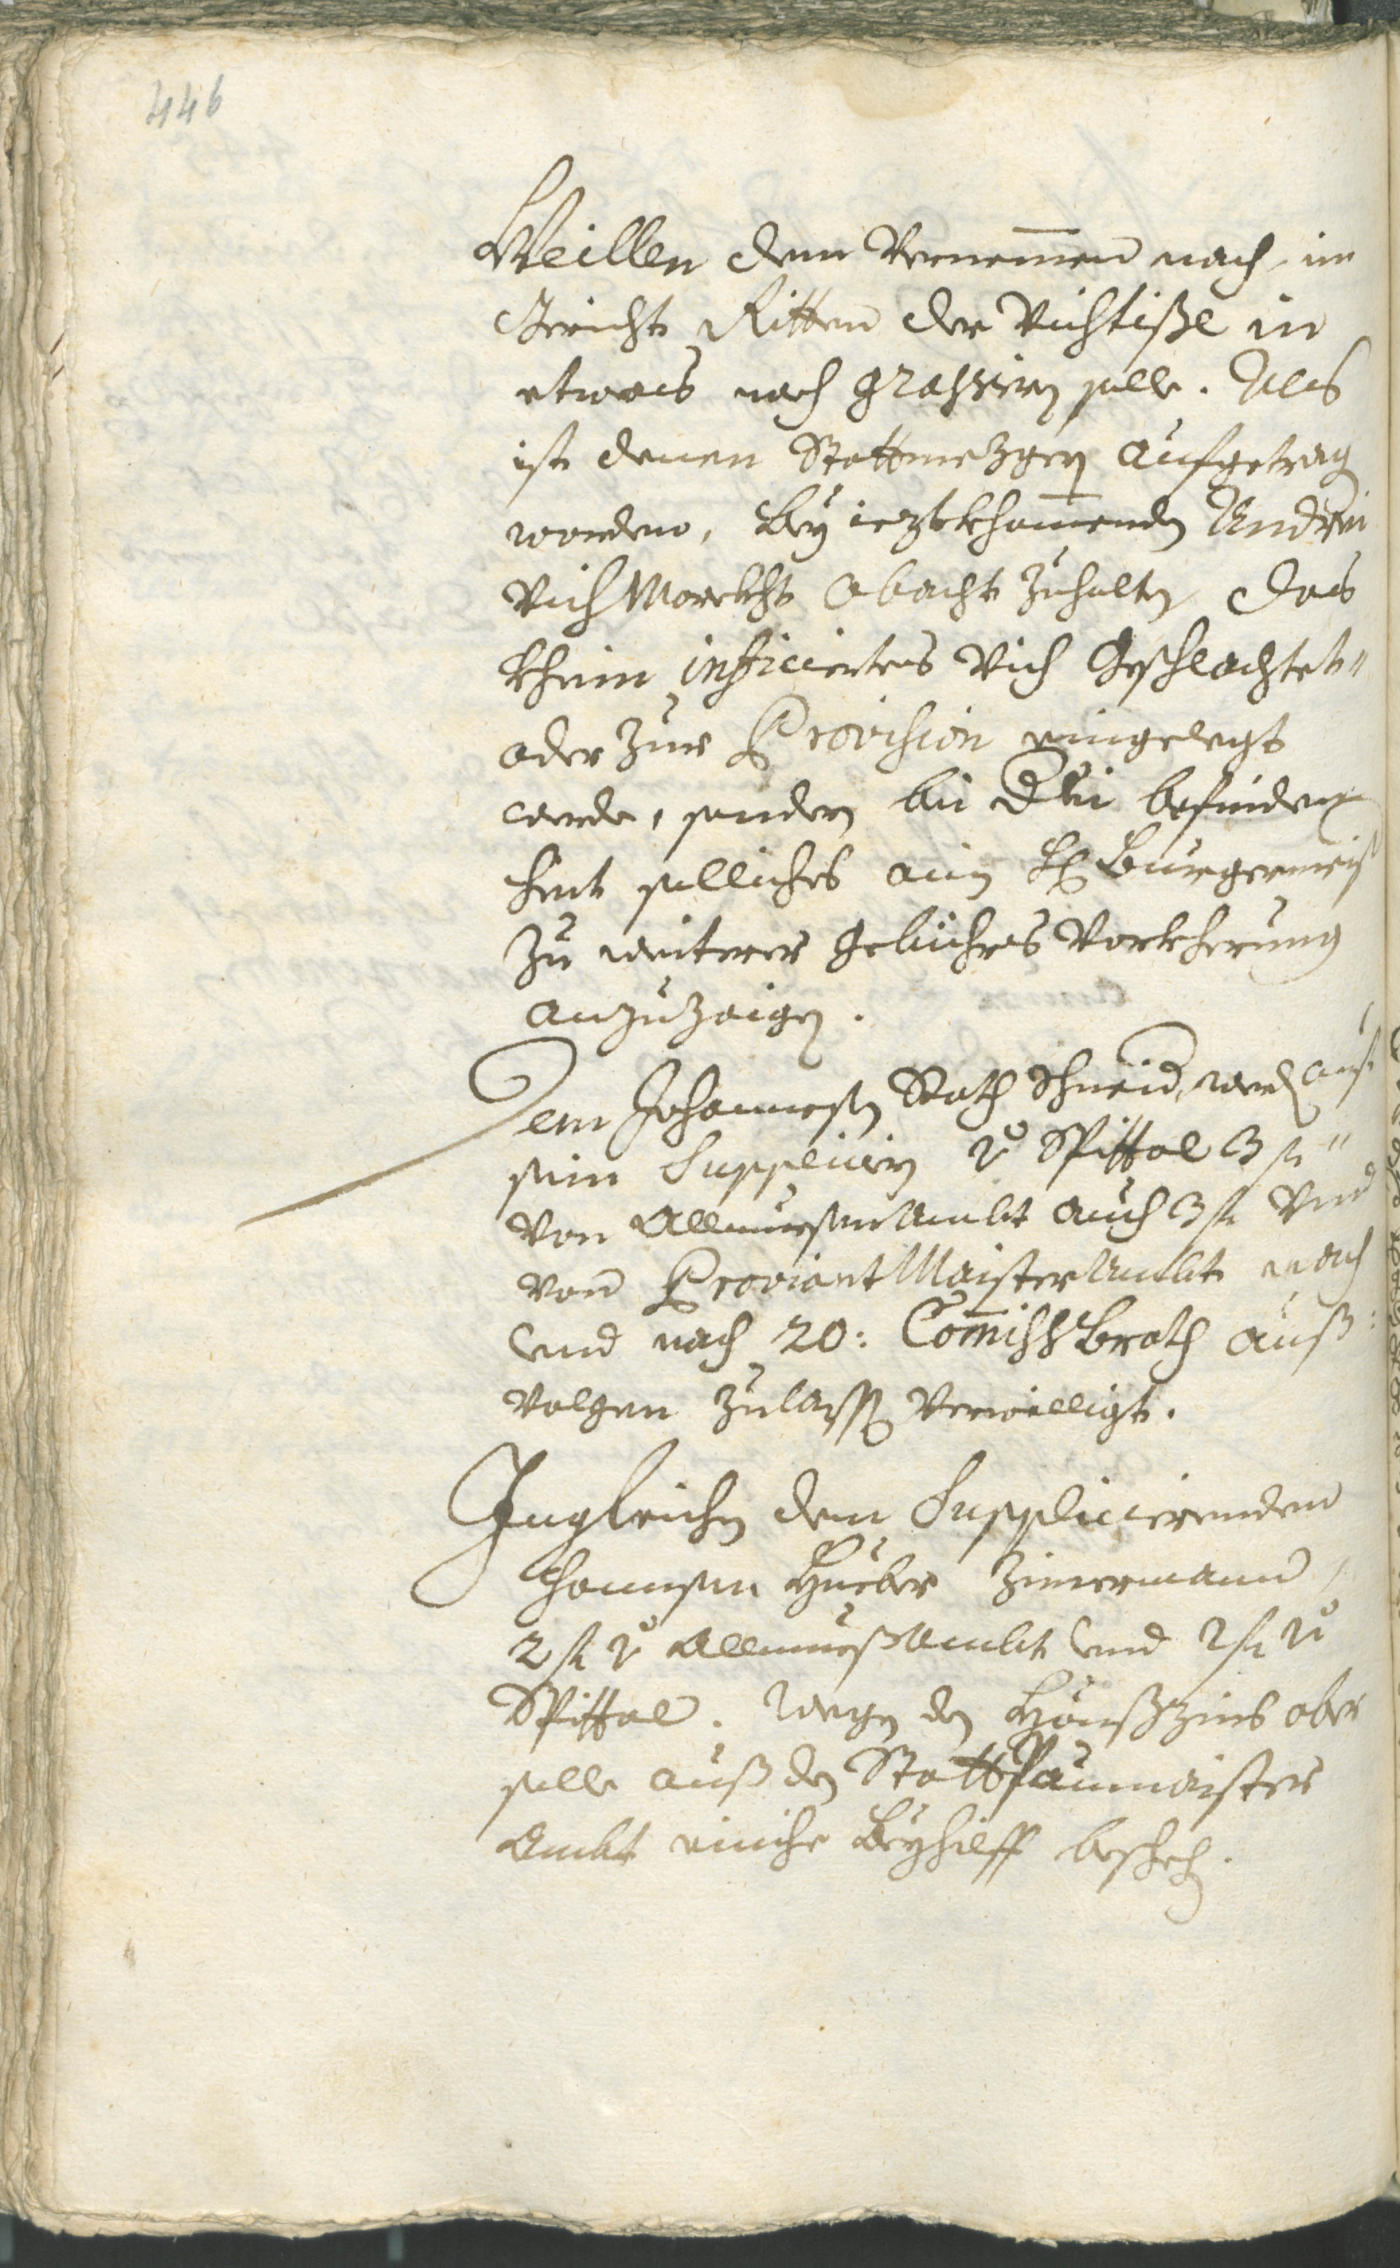 446
Weillen dem Vernem̄en nach im
Gericht Ritten der Vichtißl in
etwas noch grassiren solle. Als
ist denen Stattmezgern aufgetrag
worden, bey ieztkhom̄enden Andrei
Vich Marckht obacht zuhalten, das
khein inficiertes Vich geschlachtet"
oder zur Provision eingelegt
werde, sondern bei befinden
heit solliches ain H Burgermeist
zu weiterer gebührs Vorkherung
anzuzaigen.
Dem Johannesen Rath Schneid, werd auf
sein Suppliciren v Spittal 3 fl"
von Allmuesen Ambt auch 3 fl vnd
von Proviant Maister Ambt nach
vnd nach 20: Com̄iss Broth auß:
volgen zulassen verwilligt.
Ingleichen dem Supplicierenden
Hannsen Hueber Zimermann,
2 fl v Allmueß Ambt vnd 2 fl v
Spittal. Wegen den Haußzins aber
solle auß den Stattpaumaister
Ambt einiche Beyhilff beschehen.